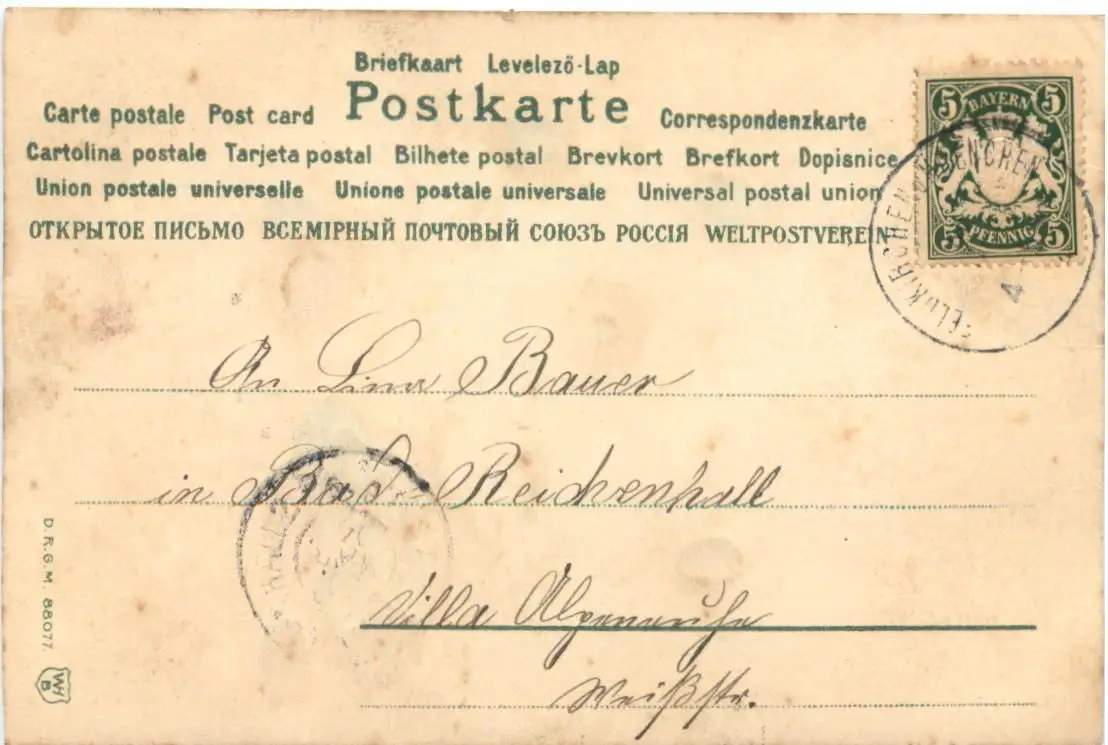 Briefkaart Levelező-Lap
Carte postale Post card Postkarte Correspondenzkarte
Cartolina postale Tarjeta postal Bilhete postal Brevkort Brefkort Dopisnice
Union postale universelle Unione postale universale Universal postal union
ОТКРЫТОЕ ПИСЬМО ВСЕМІРНЫЙ ПОЧТОВЫЙ СОЮЗЪ РОССІЯ WELTPOSTVEREIN
5 BAYERN 5
5 PFENNIG 5
4
An Lina Bauer
in Bad-Reichenhall
Villa Alpenruhe
Weißstr.
D.R.G.M. 88077.
WH
B